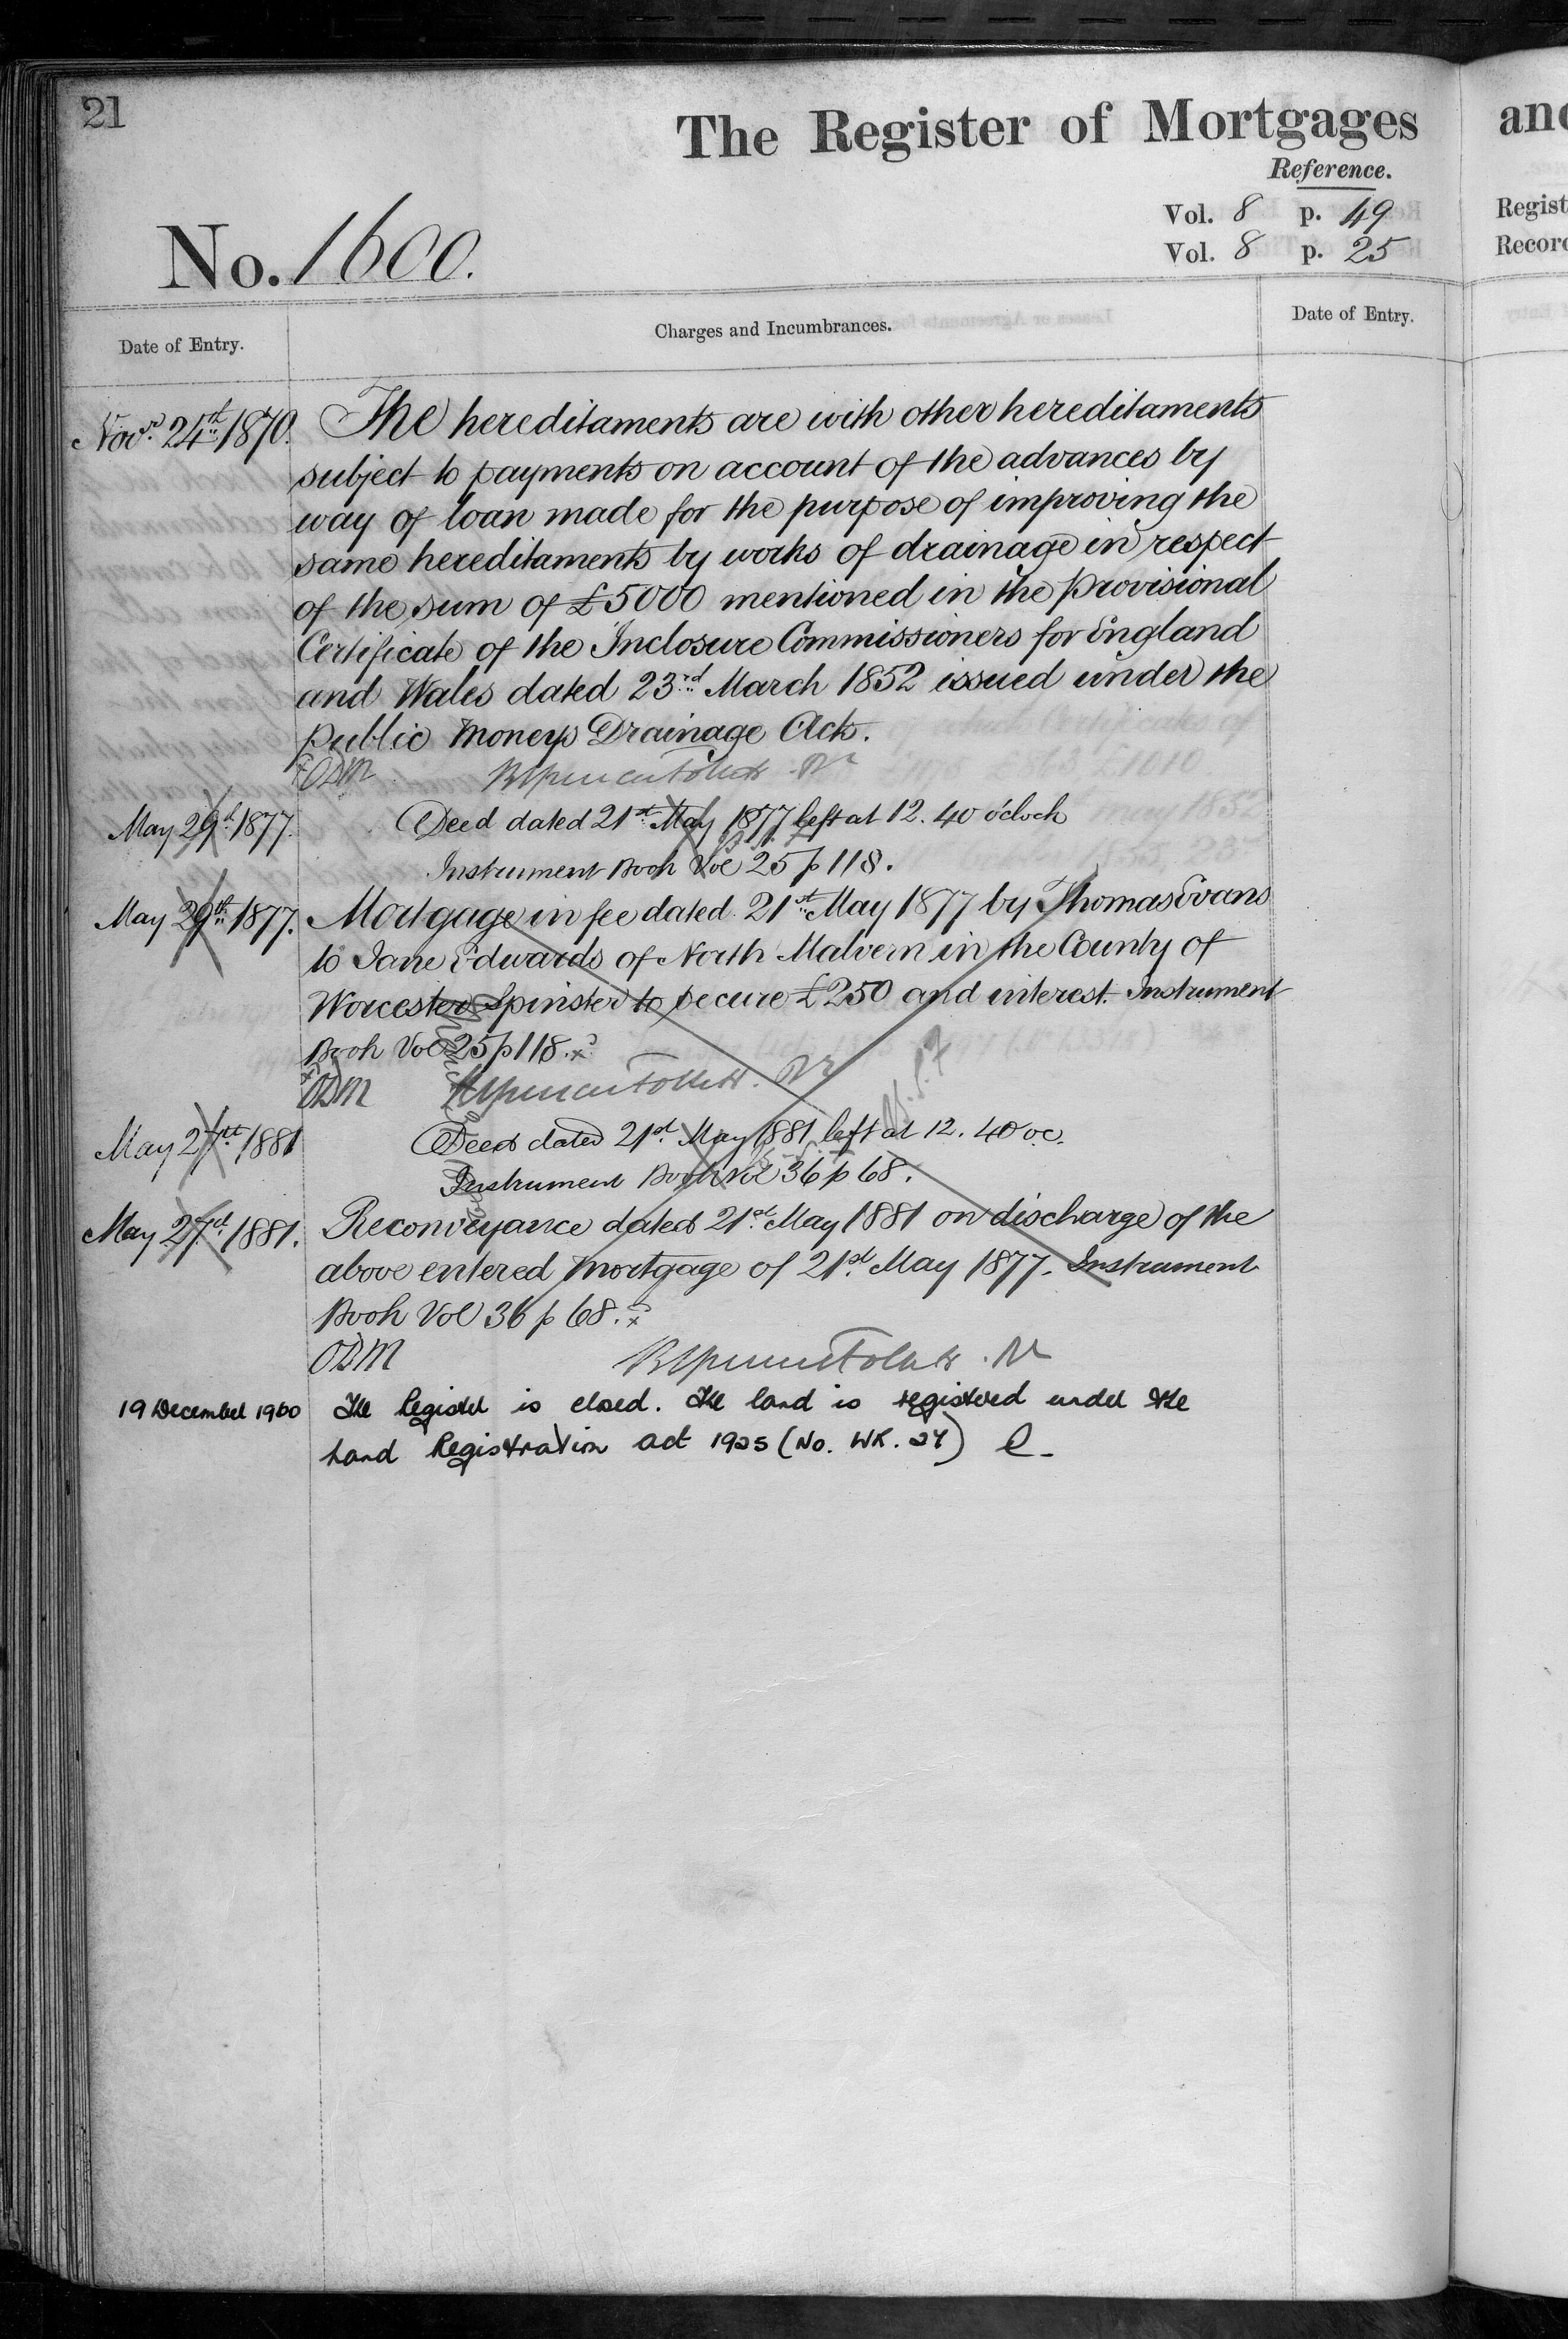 21
The Register of Mortgages
Reference.
Vol. 8 p. 49
Vol. 8 p. 25
No. 1600.
Date of Entry.
Charges and Incumbrances.
Date of Entry.
Novr. 24th 1870. The hereditaments are with other hereditaments
subject to payments on account of the advances by
way of loan made for the purpose of improving the
same hereditaments by works of drainage in respect
of the sum of £5000 mentioned in the Provisional
Certificate of the Inclosure Commissioners for England
and Wales dated 23rd March 1852 issued under the
Public Moneys Drainage Acts.
ODM
May 29th 1877. Deed dated 21st May 1877 left at 12.40 o'clock
Instrument Book Vol 25 p 118.
May 29th 1877. Mortgage in fee dated 21st May 1877 by Thomas Evans
to Jane Edwards of North Malvern in the County of
Worcester Spinster to secure £250 and interest. Instrument
Book Vol 25 p 118.
ODM
May 27th 1881 Deed dated 21st May 1881 left at 12.40 oc.
Instrument Book Vol 36 p 68.
May 27th 1881. Reconveyance dated 21st May 1881 on discharge of the
above entered mortgage of 21st May 1877. Instrument
Book Vol 36 p 68.
ODM
19 December 1960 The Register is closed. The land is registered under the
Land Registration Act 1925 (No. WK. 24)
and
Regist
Record